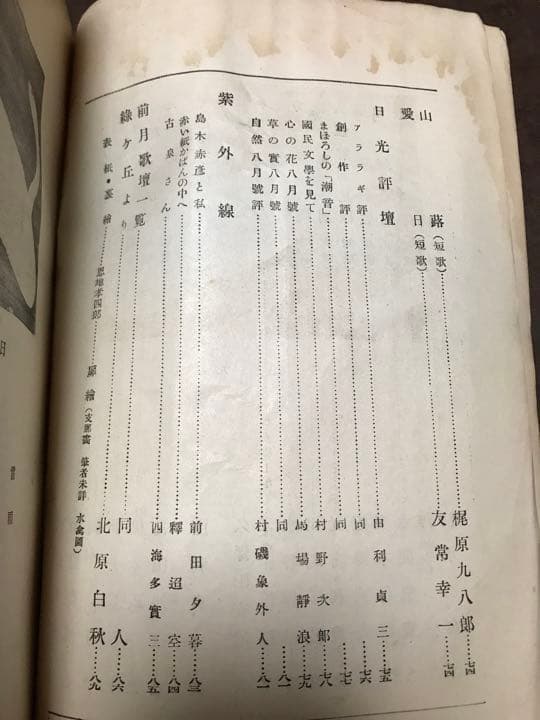 山蕗(短歌)……梶原九八郎…七四
愛日(短歌)……友常幸一…七四
日光評壇
アララギ評……由利貞三…七五
創作評……同…七六
まぼろしの「潮音」……同…七七
國民文學を見て……村野次郎…七八
心の花八月號……馬場靜浪…七九
草の實八月號……同…八一
自然八月號評……村磯象外人…八一
紫外線
島木赤彦と私……前田夕暮…八三
赤い紙かばんの中へ……釋迢空…八四
古泉さん……四海多實三…八五
前月歌壇一覧……同人…八六
綠ヶ丘より……北原白秋…八九
表紙・裏繪……恩地孝四郎……扉繪(支那畵 筆者未詳 水禽圖)